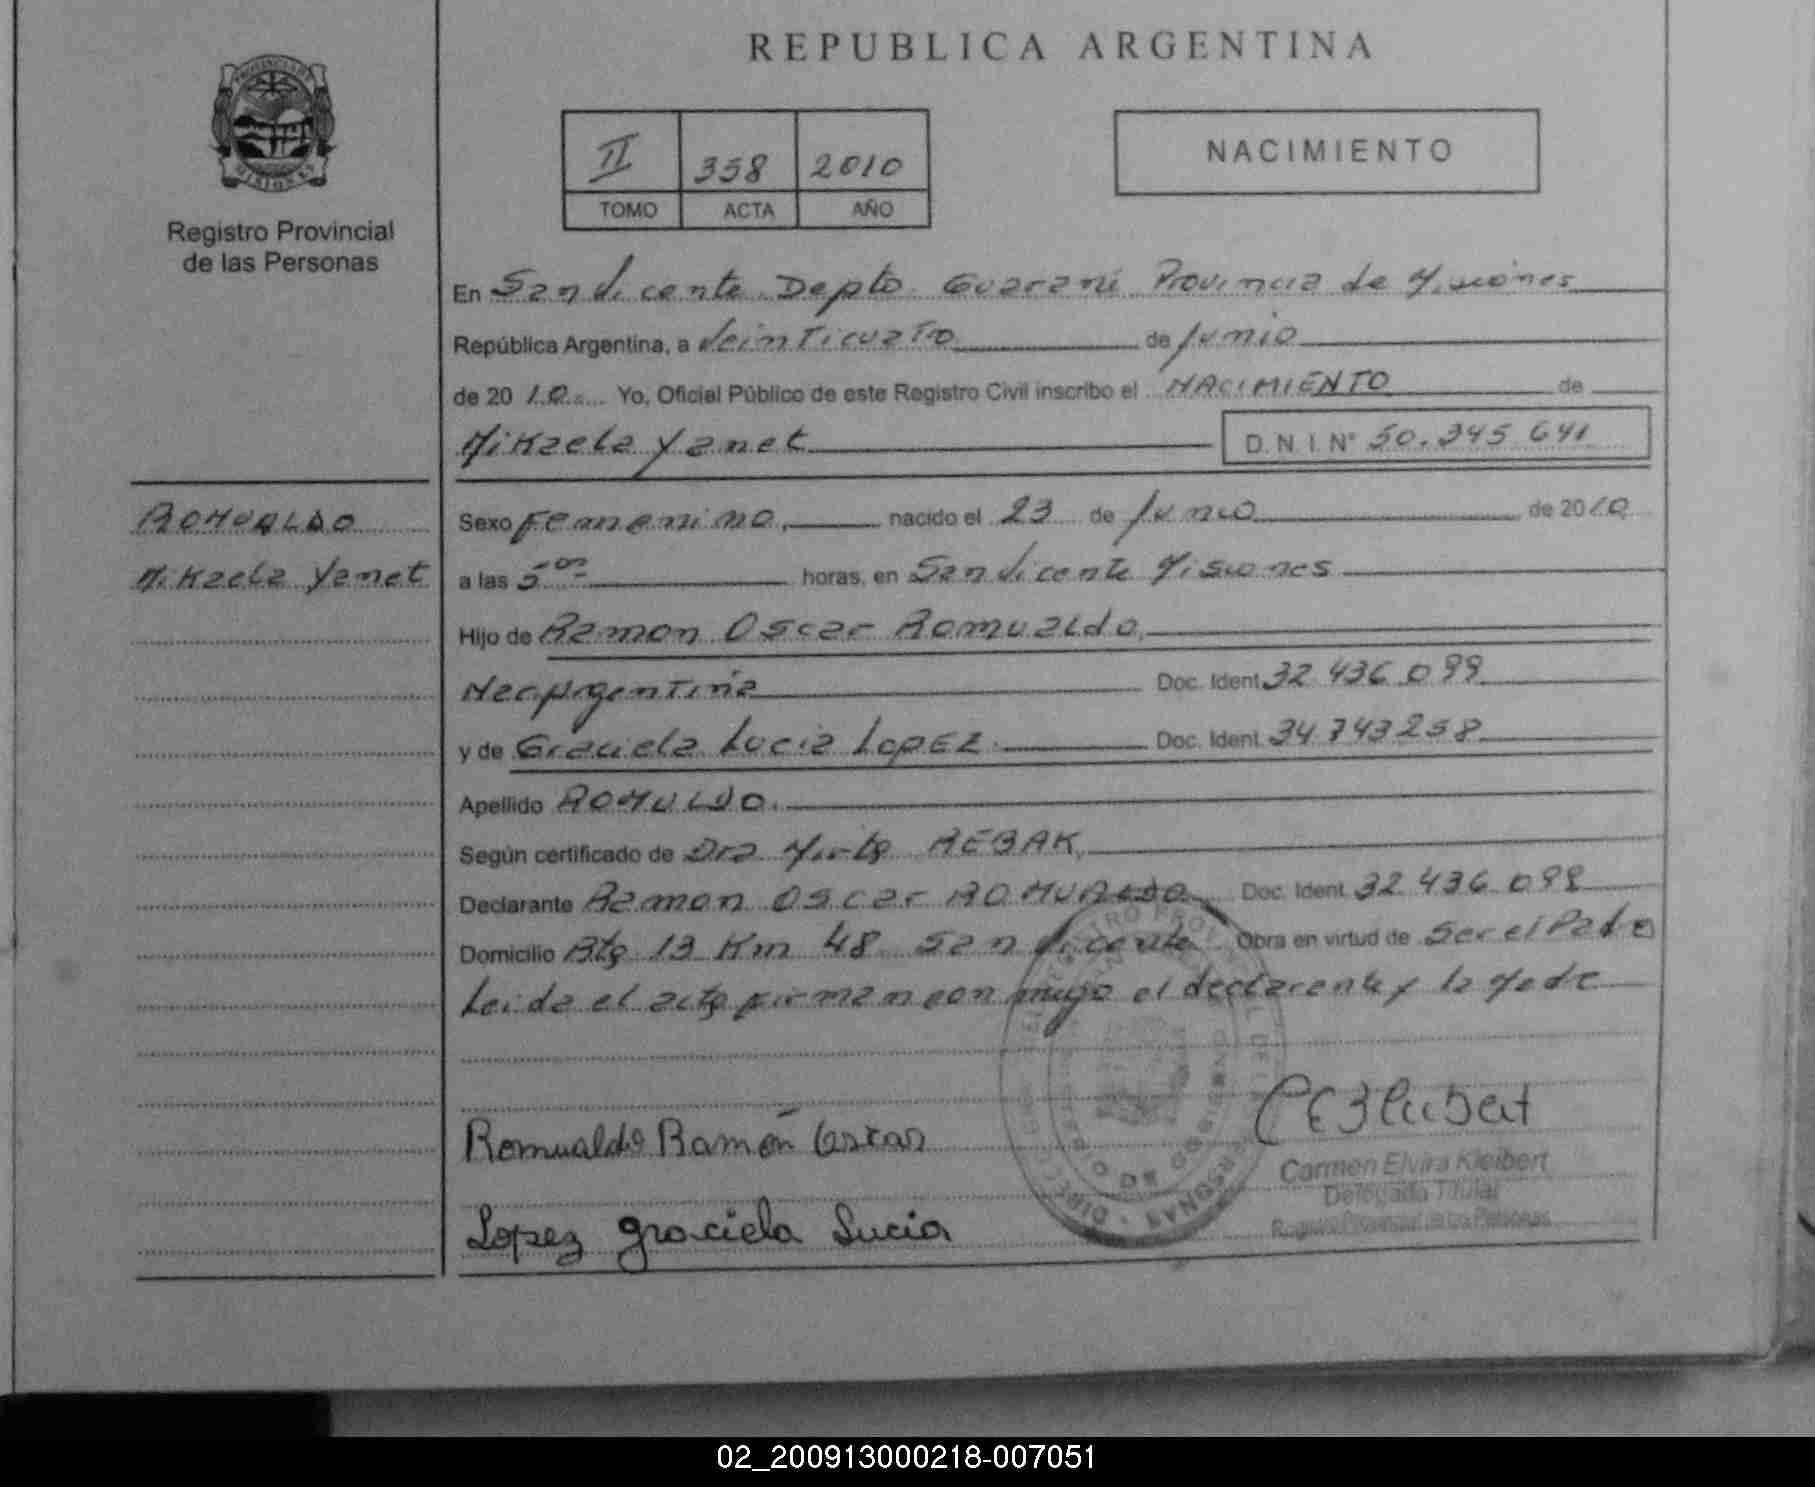 REPUBLICA ARGENTINA
PROVINCIA DE MISIONES
Registro Provincial
de las Personas
II 358 2010
TOMO ACTA AÑO
NACIMIENTO
En San Vicente Depto Guarani Provincia de Misiones
República Argentina, a Veinticuatro de Junio
de 2010. Yo, Oficial Público de este Registro Civil inscribo el NACIMIENTO de
Mikaela Yanet D.N.I. N° 50.345.641
ROMUALDO
Mikaela Yanet
Sexo Femenino, nacido el 23 de Junio de 2010
a las 5 00 horas, en San Vicente Misiones
Hijo de Ramon Oscar Romualdo,
Nac. Argentina Doc. Ident. 32 436 099
y de Graciela Lucia LopEZ. Doc. Ident. 34 743 258
Apellido ROMULDO.
Según certificado de Dra REBAK,
Declarante Ramon Oscar ROMUALDO Doc. Ident. 32 436 099
Domicilio 13 Km 48 San Vicente Obra en virtud de Ser el Padre
Leida el acta firman con migo el declarante y la Madre
Romualdo Ramón Oscar
Carmen Elvira Kleibert
Delegada Titular
Registro Provincial de las Personas
Lopez Graciela Lucia
02_200913000218-007051